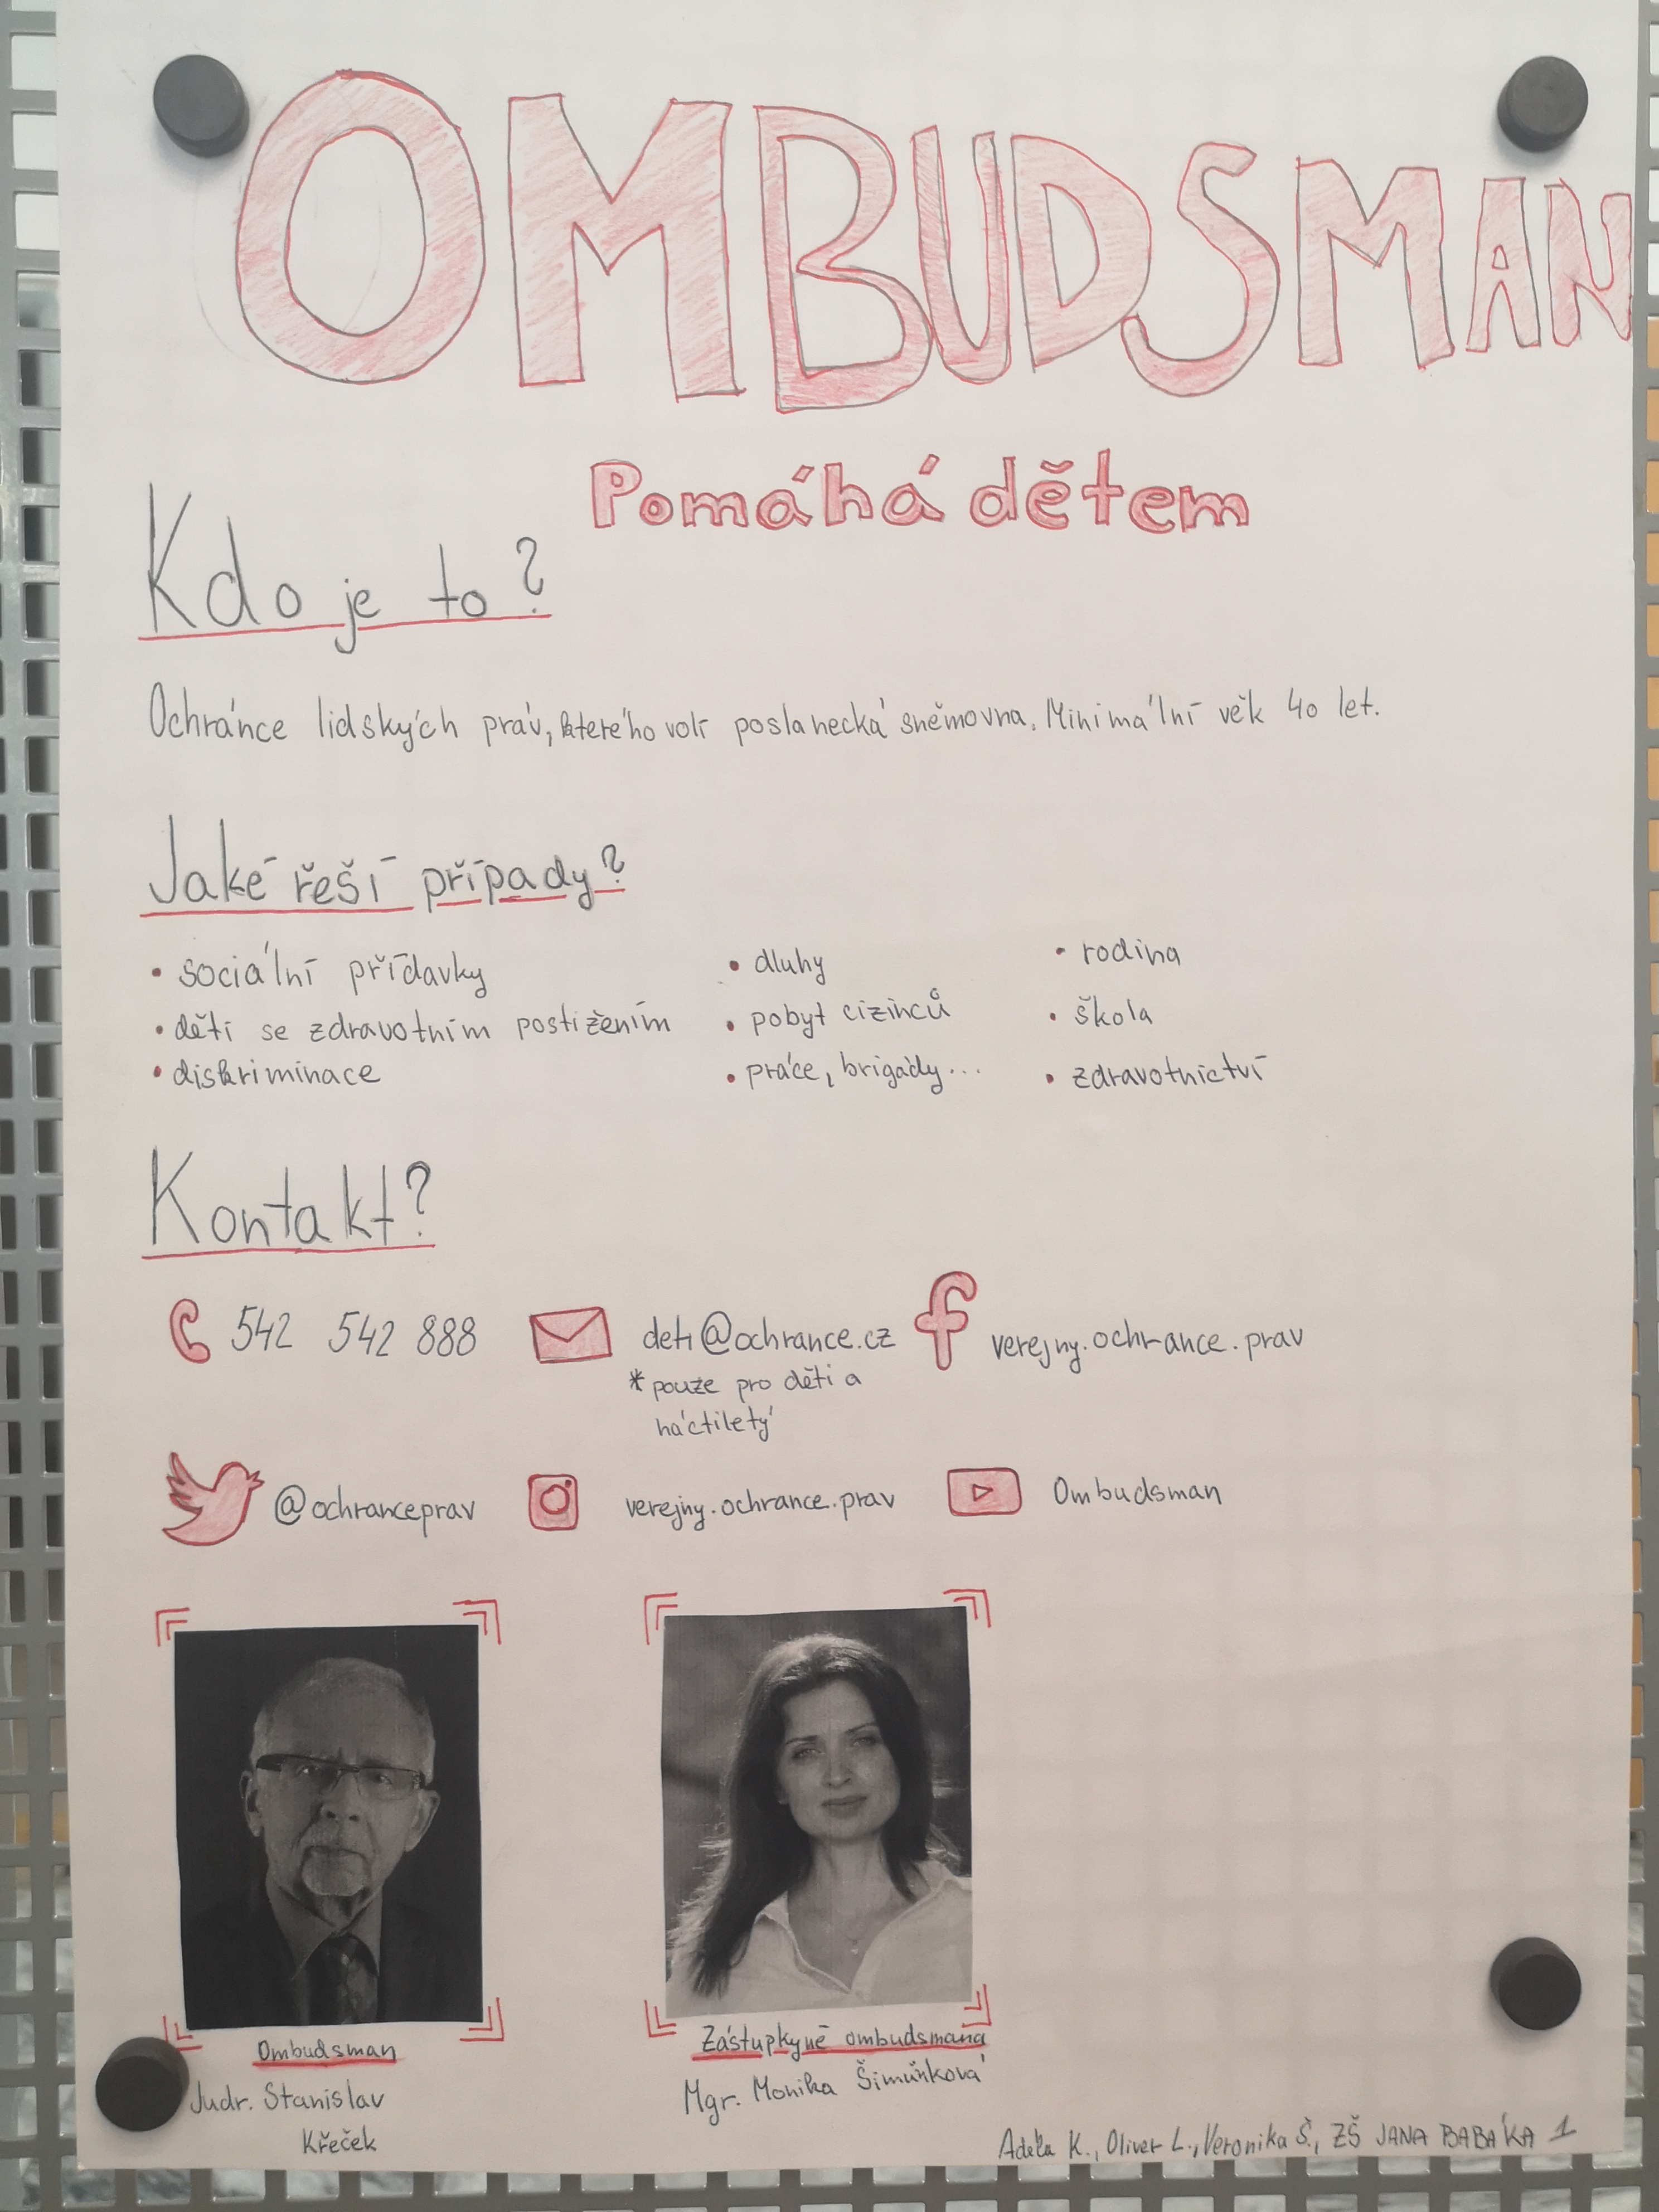 OMBUDSMAN
Pomáhá dětem
Kdo je to?
Ochránce lidských práv, kterého volí poslanecká sněmovna. Minimální věk 40 let.
Jaké řeší případy?
• sociální přídavky
• děti se zdravotním postižením
• diskriminace
• dluhy
• pobyt cizinců
• práce, brigády...
• rodina
• škola
• zdravotnictví
Kontakt?
542 542 888
deti@ochrance.cz
* pouze pro děti a
náctiletý
verejny.ochrance.prav
@ochranceprav
verejny.ochrance.prav
Ombudsman
Ombudsman
Judr. Stanislav
Křeček
Zástupkyně ombudsmana
Mgr. Monika Šimůnková
Adéla K., Oliver L., Veronika Š., ZŠ JANA BABÁKA 1